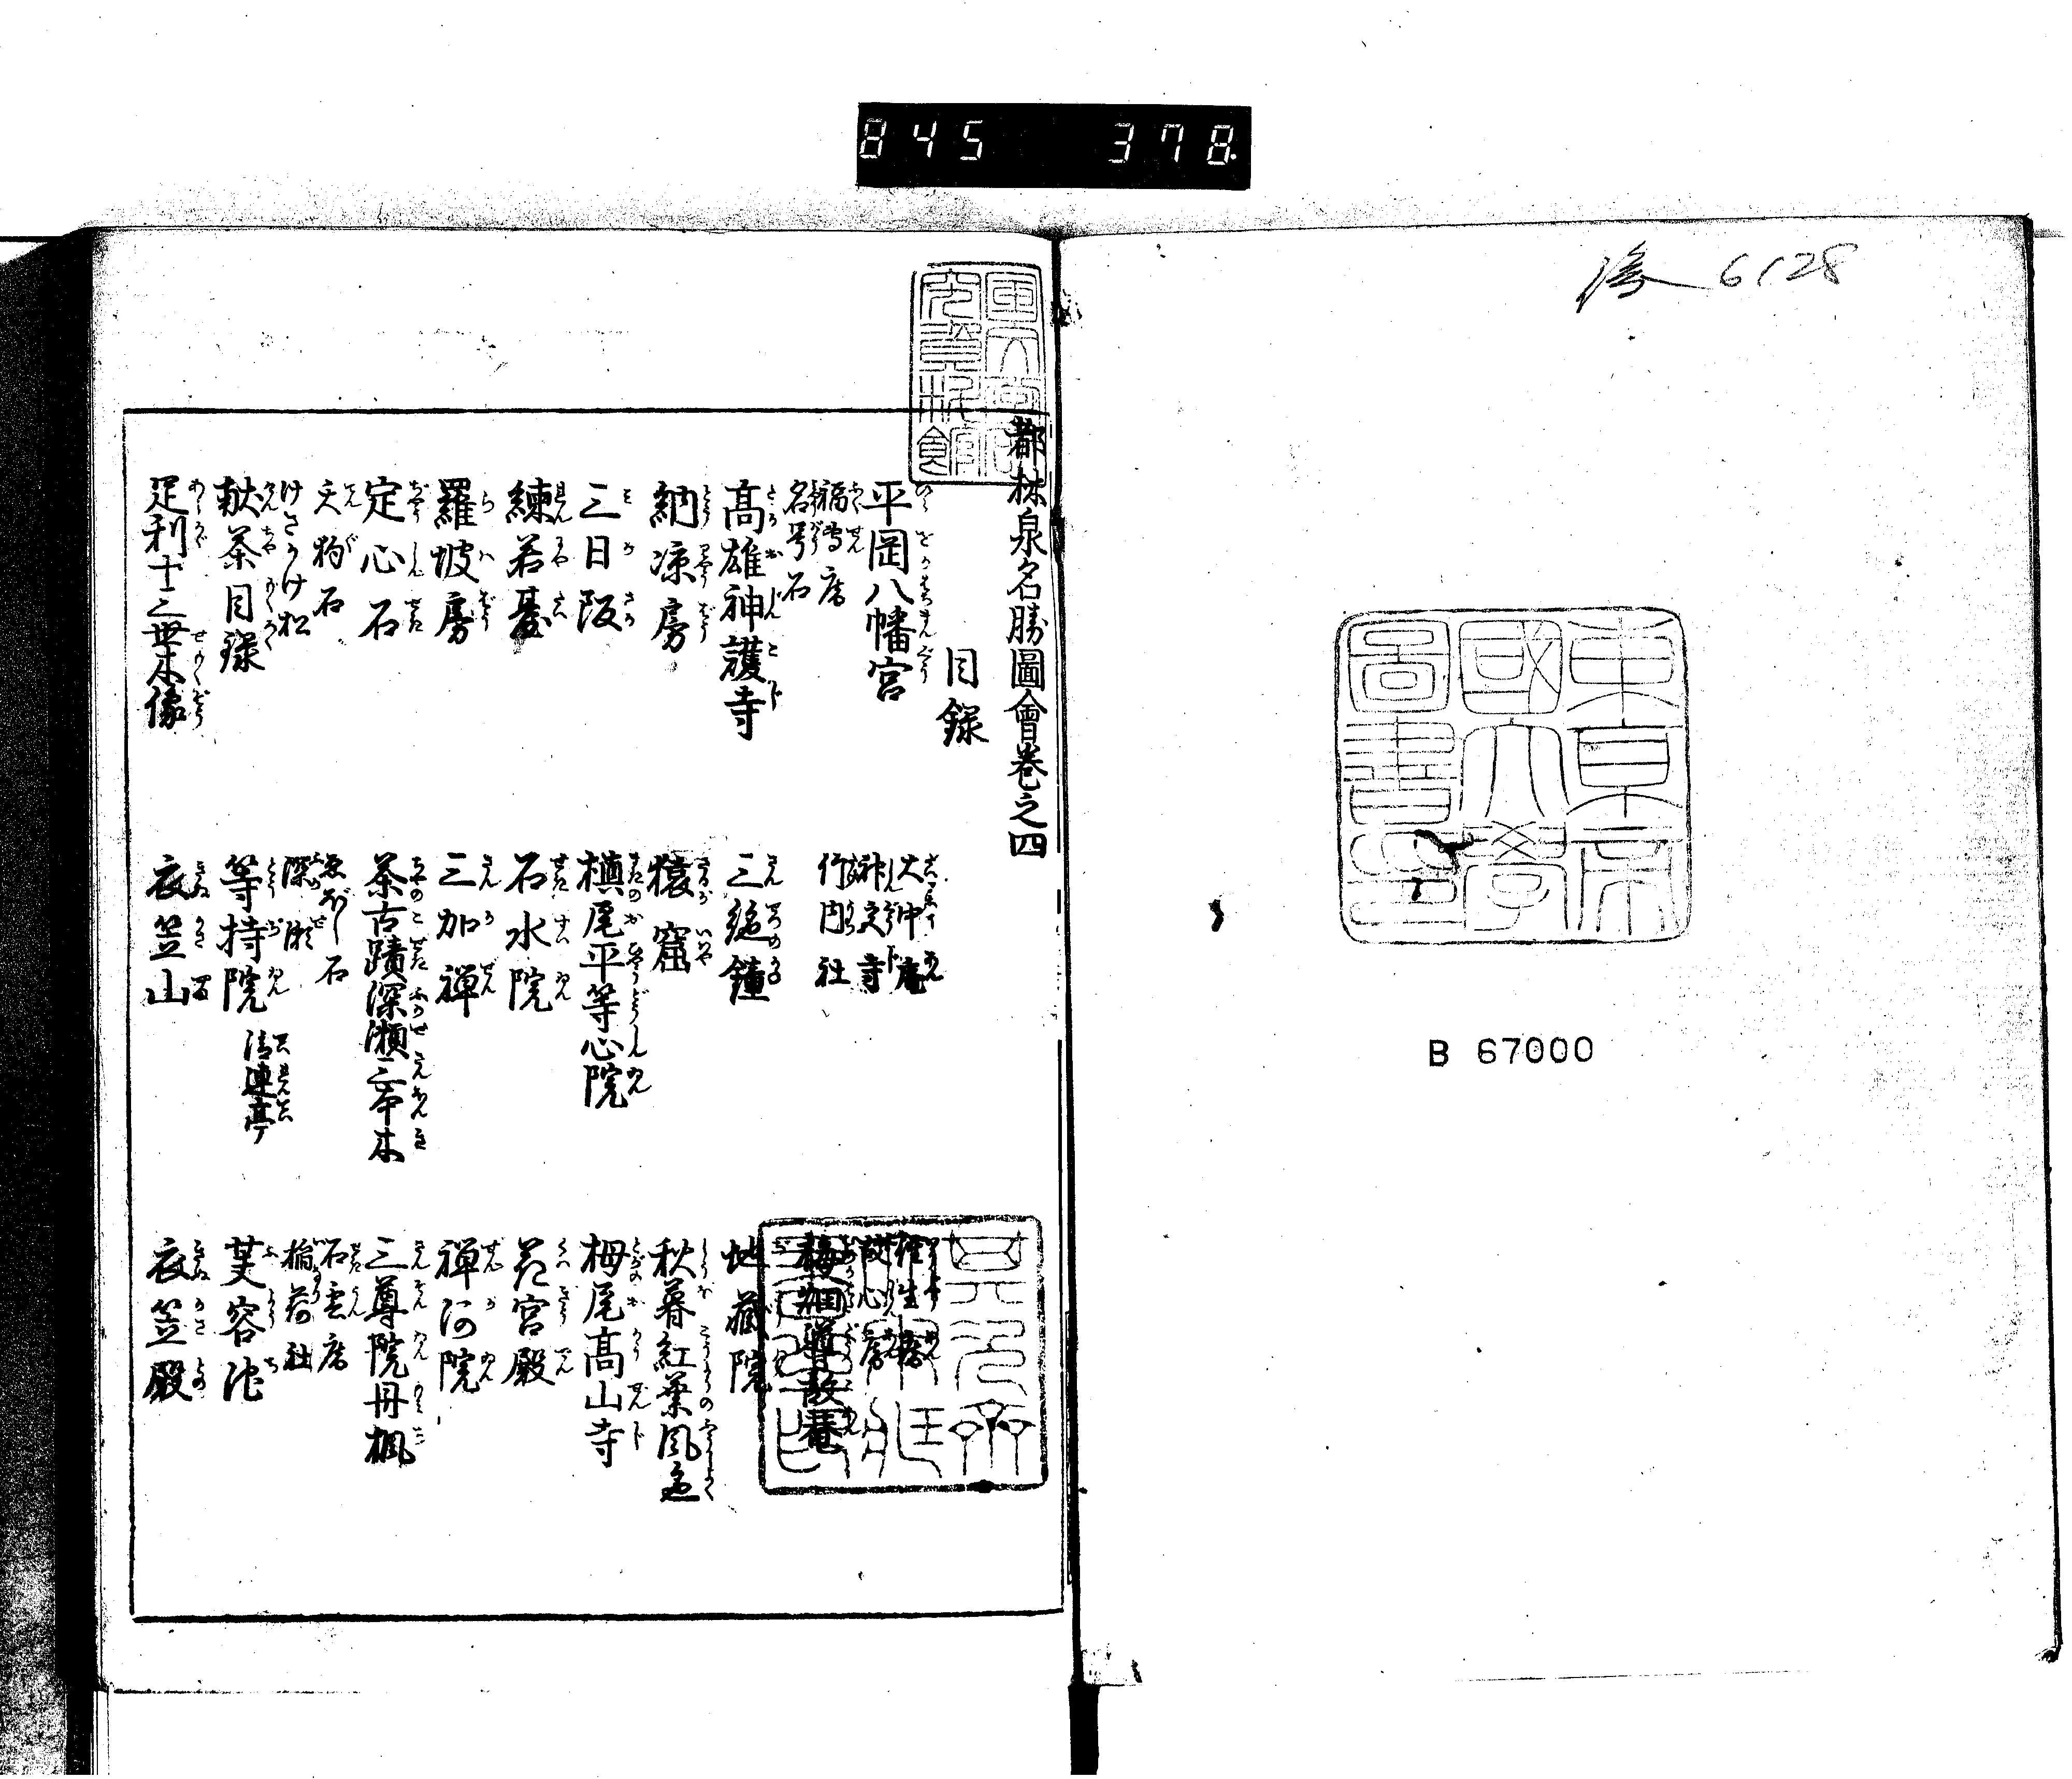 845 378.
6128
東京帝國大學圖書印
B 67000
都林泉名勝圖會巻之四
目録
平岡八幡宮
大冲庵
神交寺
竹内社
梅畑
福寿席
名号石
高雄神護寺
三絶鐘
地蔵院
納凉房
猿窟
秋暮紅葉風色
三日阪
槙尾平等心院
栂尾高山寺
練若臺
石水院
花宮殿
羅婆房
三加禅
禅河院
定心石
茶古蹟深瀬三本木
三尊院丹楓
天狗石
ゑぼし石
石雲席
けさかけ松
深瀬
稲荷社
献茶目録
等持院
清連亭
芙容池
足利十三世木像
衣笠山
衣笠殿